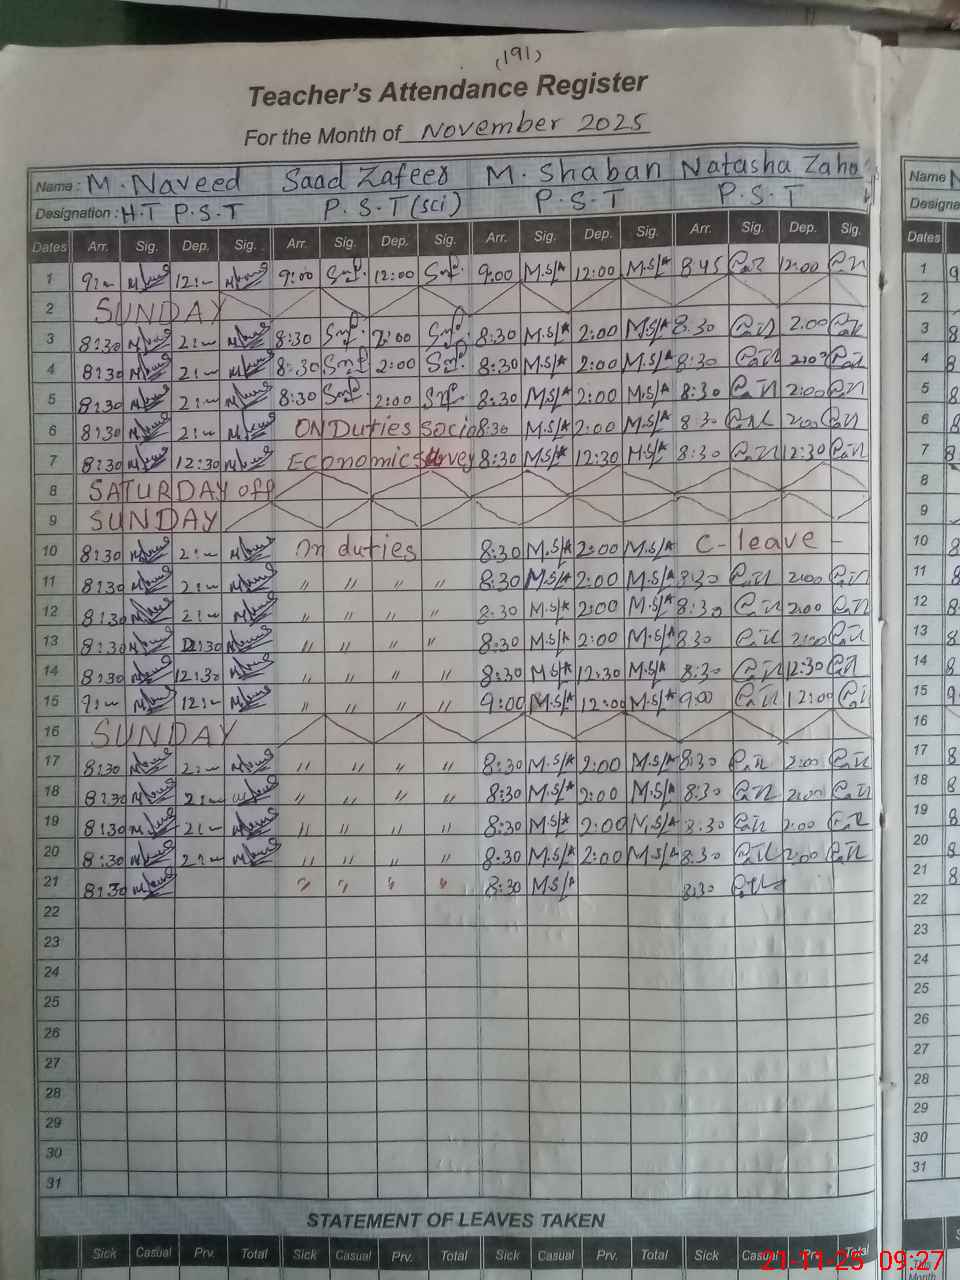 (191)
Teacher's Attendance Register
For the Month of November 2025
Name : M. Naveed Saad Zafeer M. Shaban Natasha Zaho
Designation : H.T P.S.T P.S.T (sci) P.S.T P.S.T
Dates Arr. Sig. Dep. Sig. Arr. Sig. Dep. Sig. Arr. Sig. Dep. Sig. Arr. Sig. Dep. Sig.
1 9:00 12:00 9:00 12:00 9:00 M.S/A 12:00 M.S/A 8:45 12:00
2 SUNDAY
3 8:30 2:00 8:30 2:00 8:30 M.S/A 2:00 M.S/A 8:30 2:00
4 8:30 2:00 8:30 2:00 8:30 M.S/A 2:00 M.S/A 8:30 2:00
5 8:30 2:00 8:30 2:00 8:30 M.S/A 2:00 M.S/A 8:30 2:00
6 8:30 2:00 ON Duties Socio 8:30 M.S/A 2:00 M.S/A 8:30 2:00
7 8:30 12:30 Economic Survey 8:30 M.S/A 12:30 M.S/A 8:30 12:30
8 SATURDAY off
9 SUNDAY
10 8:30 2:00 On duties 8:30 M.S/A 2:00 M.S/A C-leave -
11 8:30 2:00 " " " " 8:30 M.S/A 2:00 M.S/A 8:30 2:00
12 8:30 2:00 " " " " 8:30 M.S/A 2:00 M.S/A 8:30 2:00
13 8:30 12:30 " " " " 8:30 M.S/A 2:00 M.S/A 8:30 2:00
14 8:30 12:30 " " " " 8:30 M.S/A 12:30 M.S/A 8:30 12:30
15 9:00 12:00 " " " " 9:00 M.S/A 12:00 M.S/A 9:00 12:00
16 SUNDAY
17 8:30 2:00 " " " " 8:30 M.S/A 2:00 M.S/A 8:30 2:00
18 8:30 2:00 " " " " 8:30 M.S/A 2:00 M.S/A 8:30 2:00
19 8:30 2:00 " " " " 8:30 M.S/A 2:00 M.S/A 8:30 2:00
20 8:30 2:00 " " " " 8:30 M.S/A 2:00 M.S/A 8:30 2:00
21 8:30 " " " " 8:30 M.S/A 8:30
22
23
24
25
26
27
28
29
30
31
STATEMENT OF LEAVES TAKEN
Sick Casual Prv. Total Sick Casual Prv. Total Sick Casual Prv. Total Sick Casual Prv. Total
21-11-25 09:27
Name
Designa
Dates
1
2
3
4
5
6
7
8
9
10
11
12
13
14
15
16
17
18
19
20
21
22
23
24
25
26
27
28
29
30
31
Month